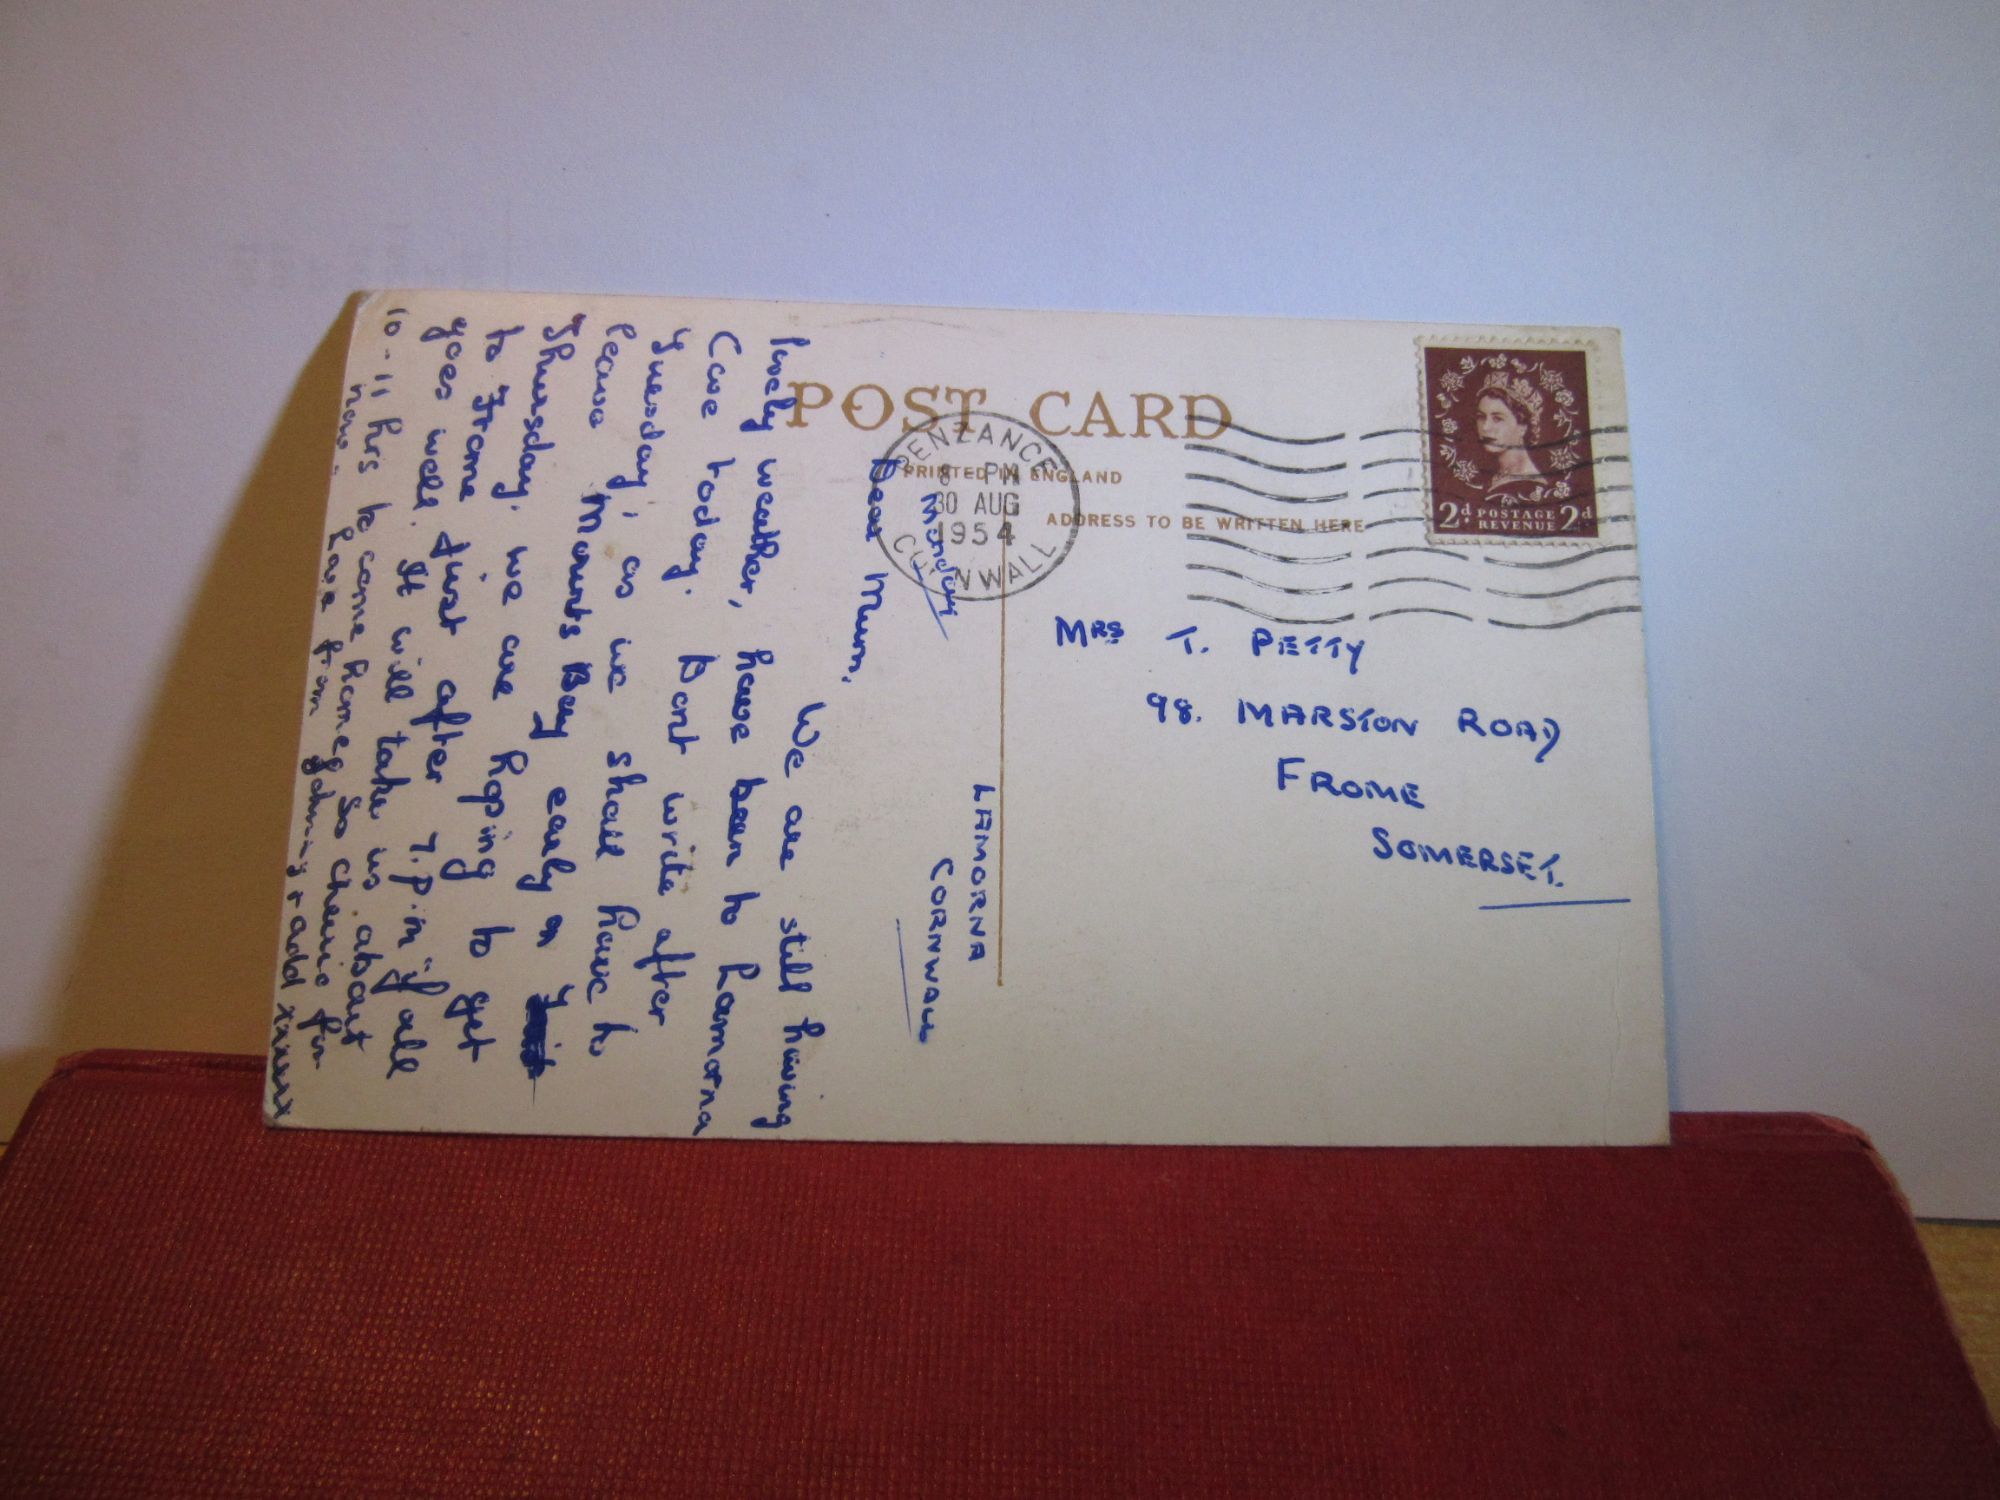 POST CARD
PRINTED IN ENGLAND
ADDRESS TO BE WRITTEN HERE
PENZANCE
8 - PM
30 AUG
1954
CORNWALL
2d POSTAGE 2d
REVENUE
MRS T. PETTY
98. MARSTON ROAD
FROME
SOMERSET.
LAMORNA
CORNWALL
Monday
Dear Mum,
We are still having
lovely weather, have been to Lamorna
Cove today. Dont write after
Tuesday, as we shall have to
leave Mounts Bay early on
Thursday. we are hoping to get
to Frome just after 7.P.m "if all
goes well. It will take us about
10-11 hrs to come home, So cheerio for
now. Love from
xxxxxx